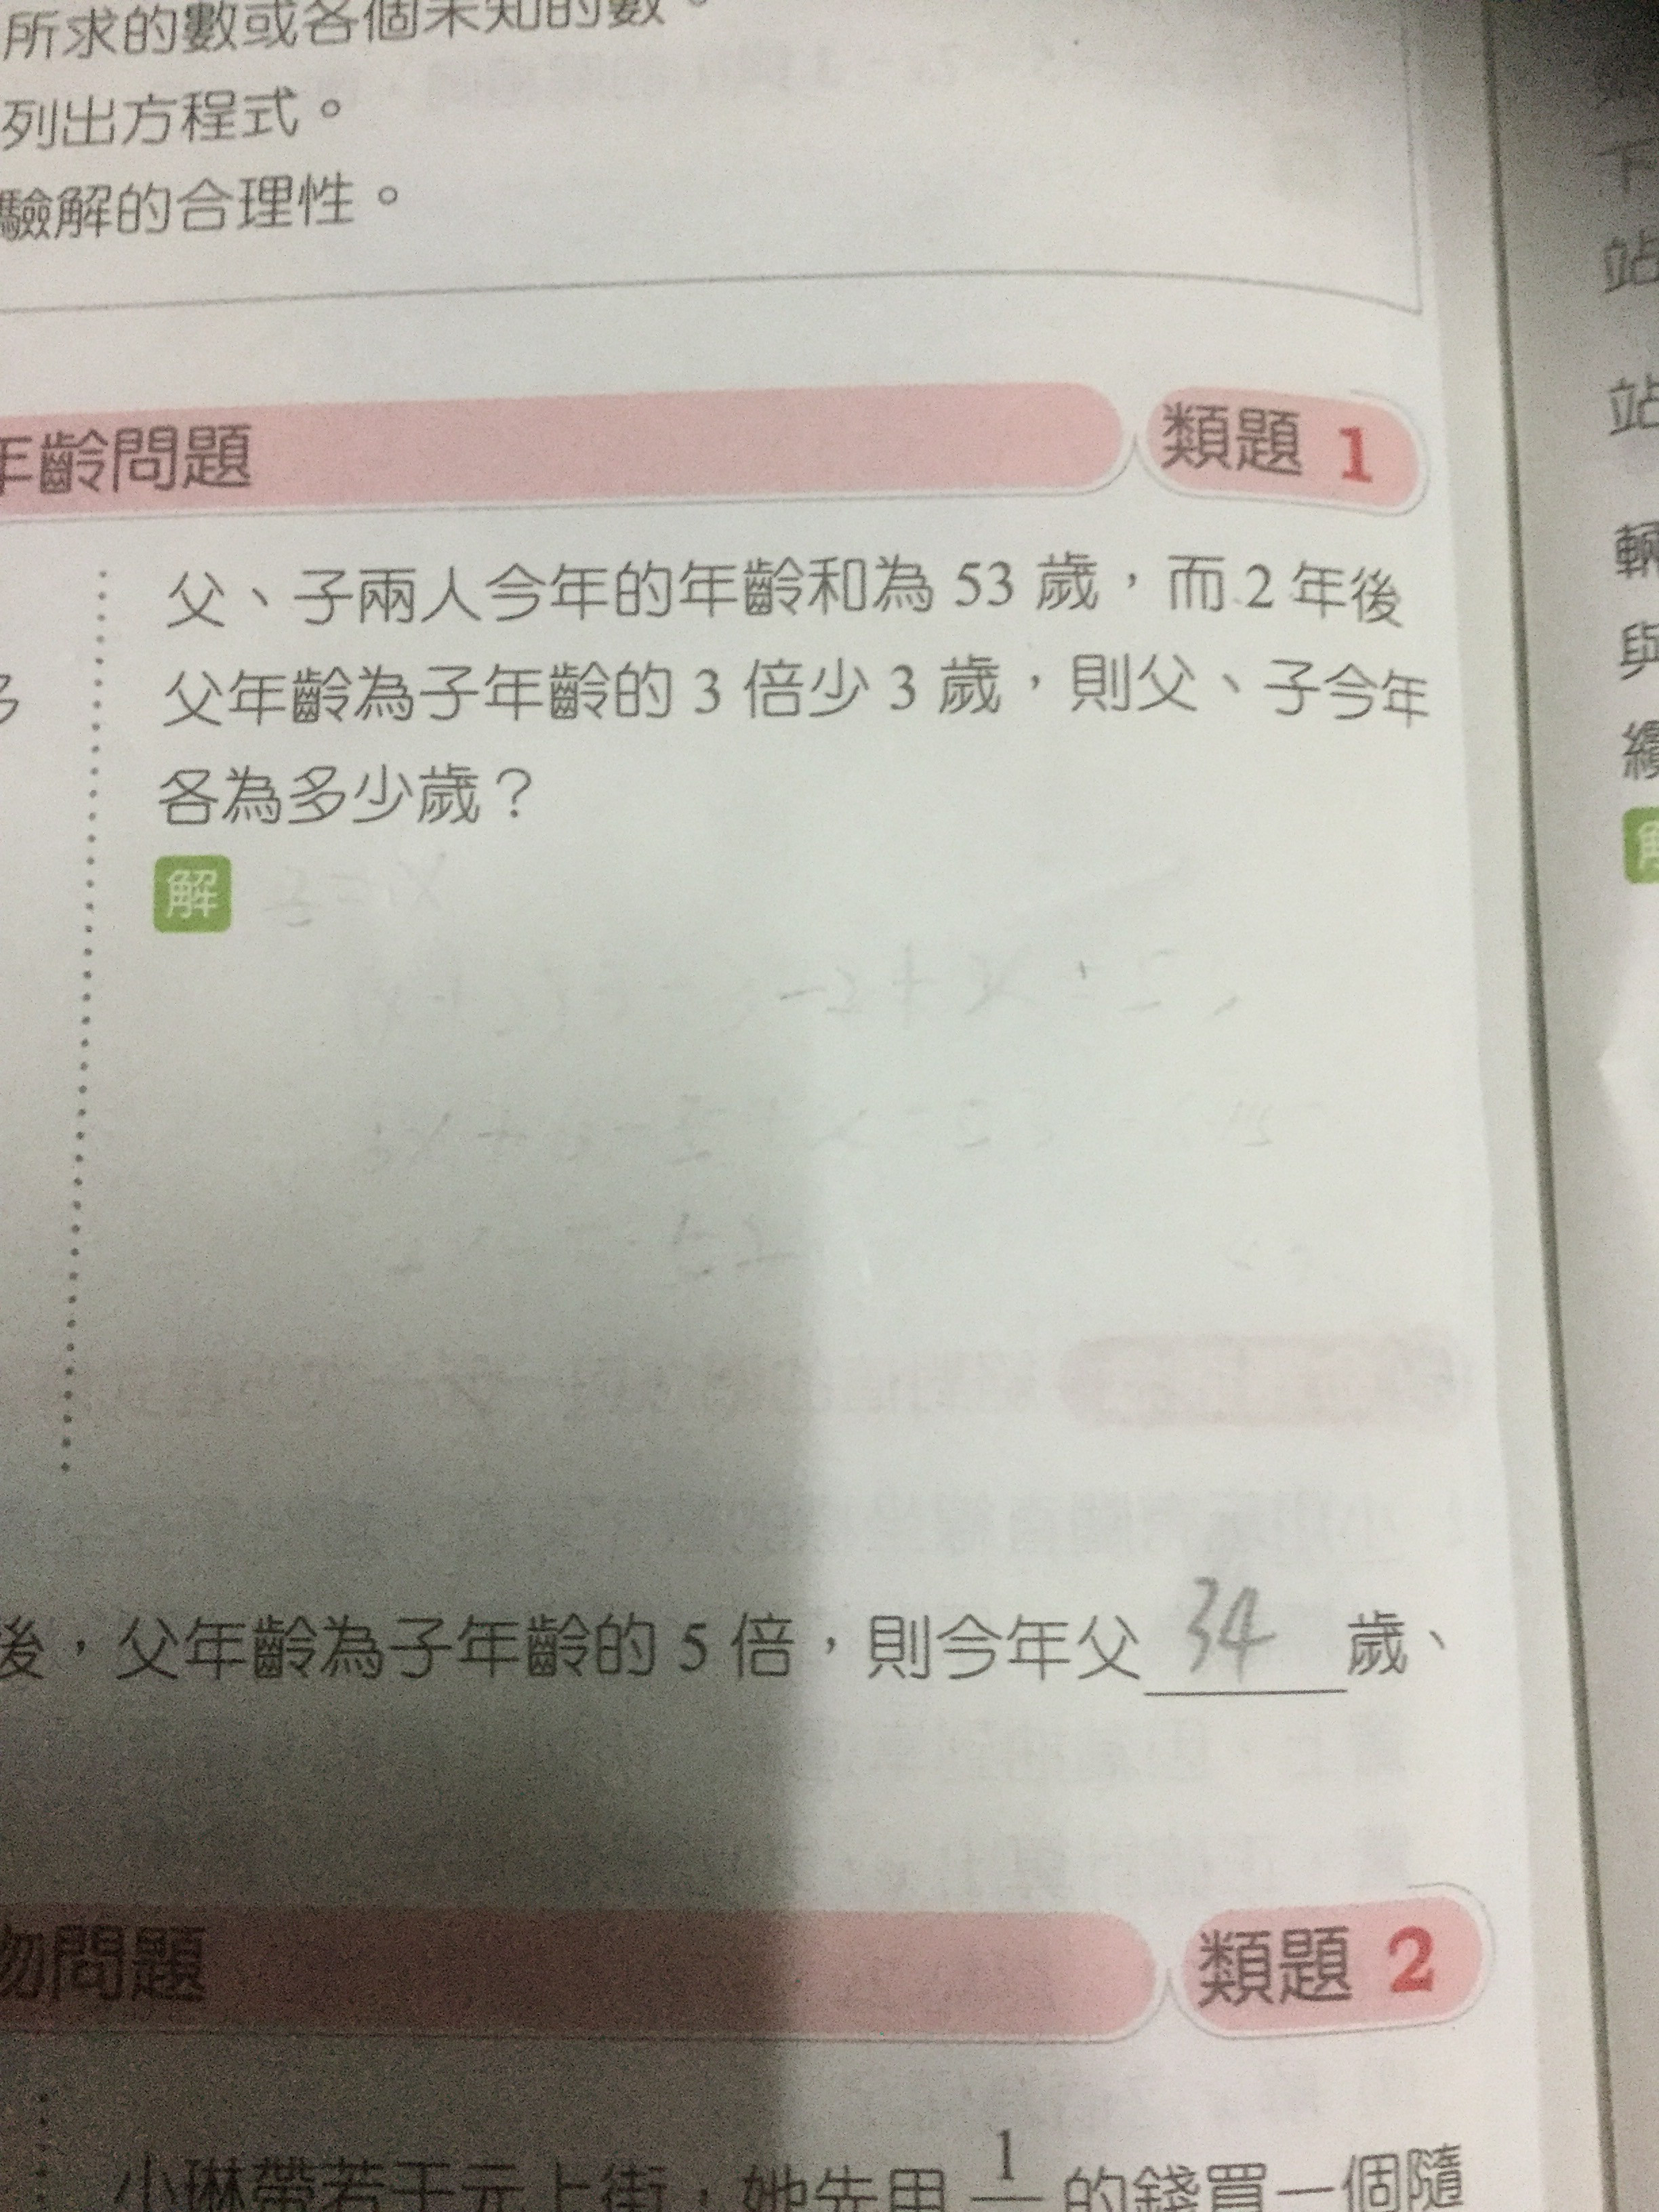 所求的數或各個未知的數。
列出方程式。
驗解的合理性。
年齡問題
類題 1
父、子兩人今年的年齡和為 53 歲，而 2 年後
父年齡為子年齡的 3 倍少 3 歲，則父、子今年
各為多少歲？
解
後，父年齡為子年齡的 5 倍，則今年父 34 歲、
物問題
類題 2
小琳帶若干元上街，她先用 1 的錢買一個隨
下
站
站
輛
與